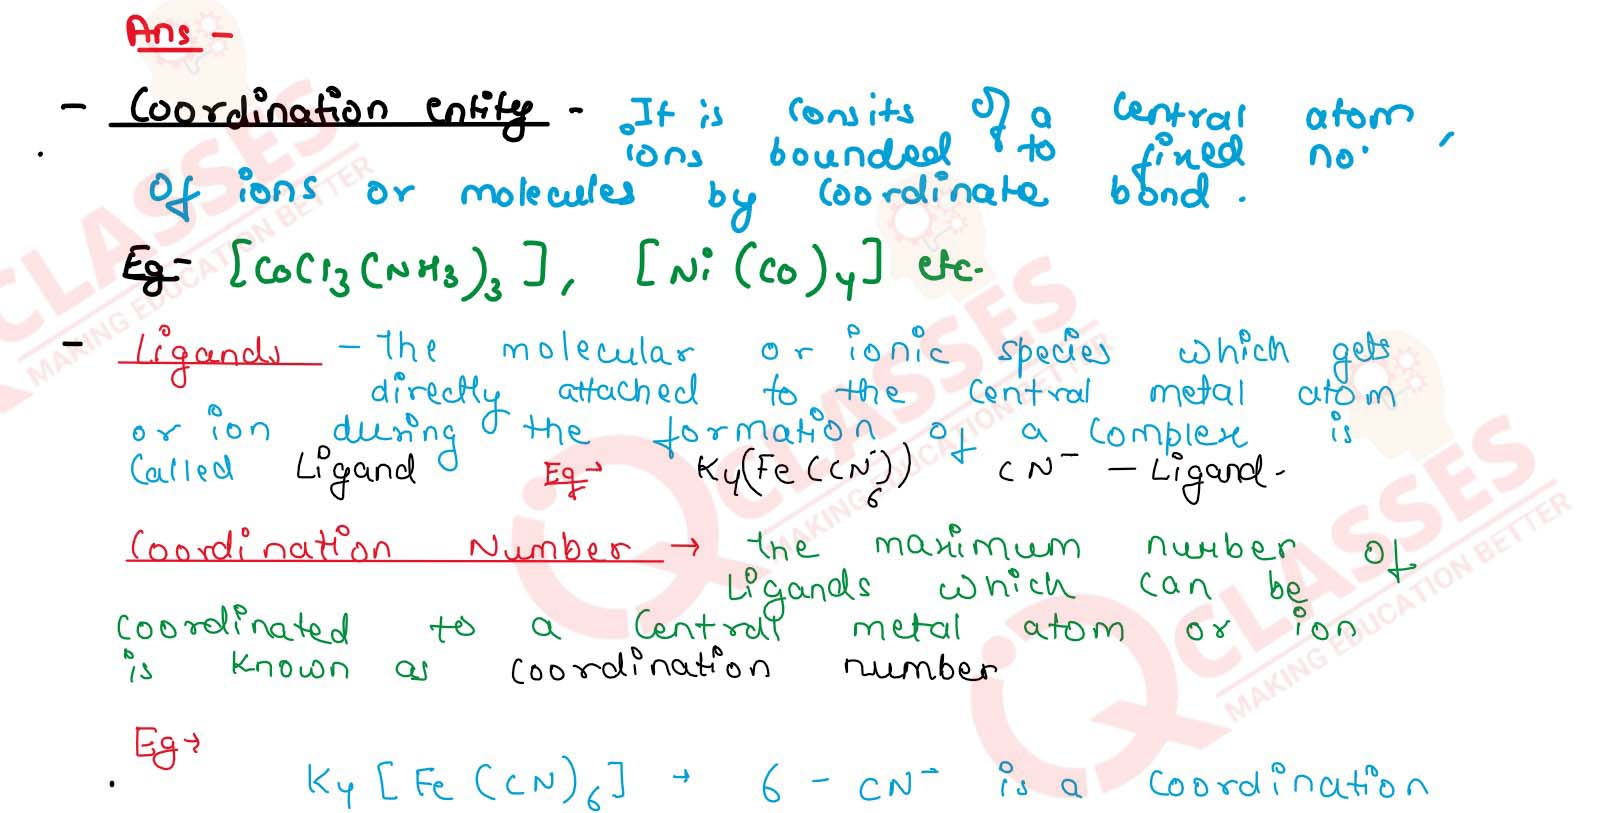 Ans -
- Coordination entity - It is consits of a central atom,
ions bounded to fixed no.
of ions or molecules by coordinate bond.
Eg- [CoCl3(NH3)3], [Ni(CO)4] etc.
- Ligands - the molecular or ionic species which gets
directly attached to the central metal atom
or ion during the formation of a complex is
called Ligand Eg→ K4(Fe(CN)6) CN⁻ - Ligand-
Coordination Number → the maximum number of
Ligands which can be
coordinated to a central metal atom or ion
is known as coordination number
Eg→
K4[Fe(CN)6] → 6 - CN⁻ is a coordination
CLASSES
MAKING EDUCATION BETTER
CLASSES
MAKING EDUCATION BETTER
CLASSES
MAKING EDUCATION BETTER